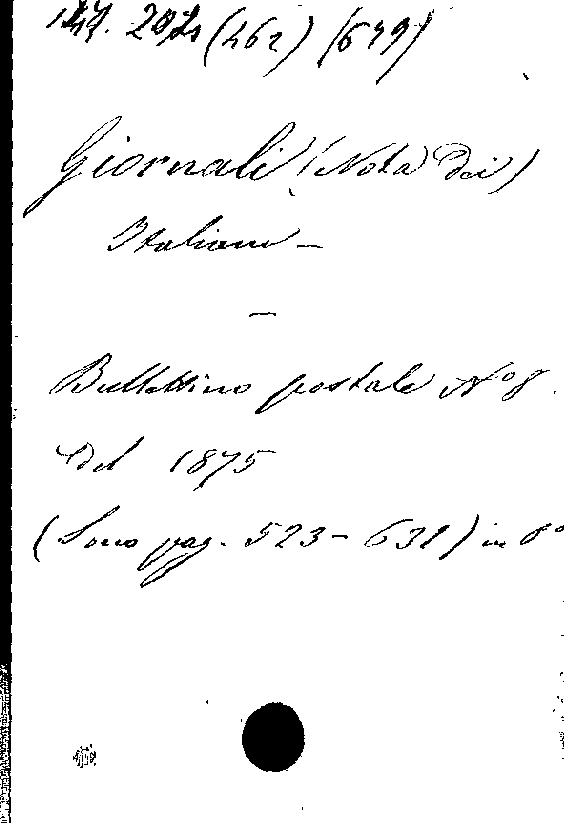 (462) (649)
Giornali (Nota dei)
Italiani –
–
Bullettino postale Nº 8.
del 1875
(Sono pag. 523 – 631) in 8º